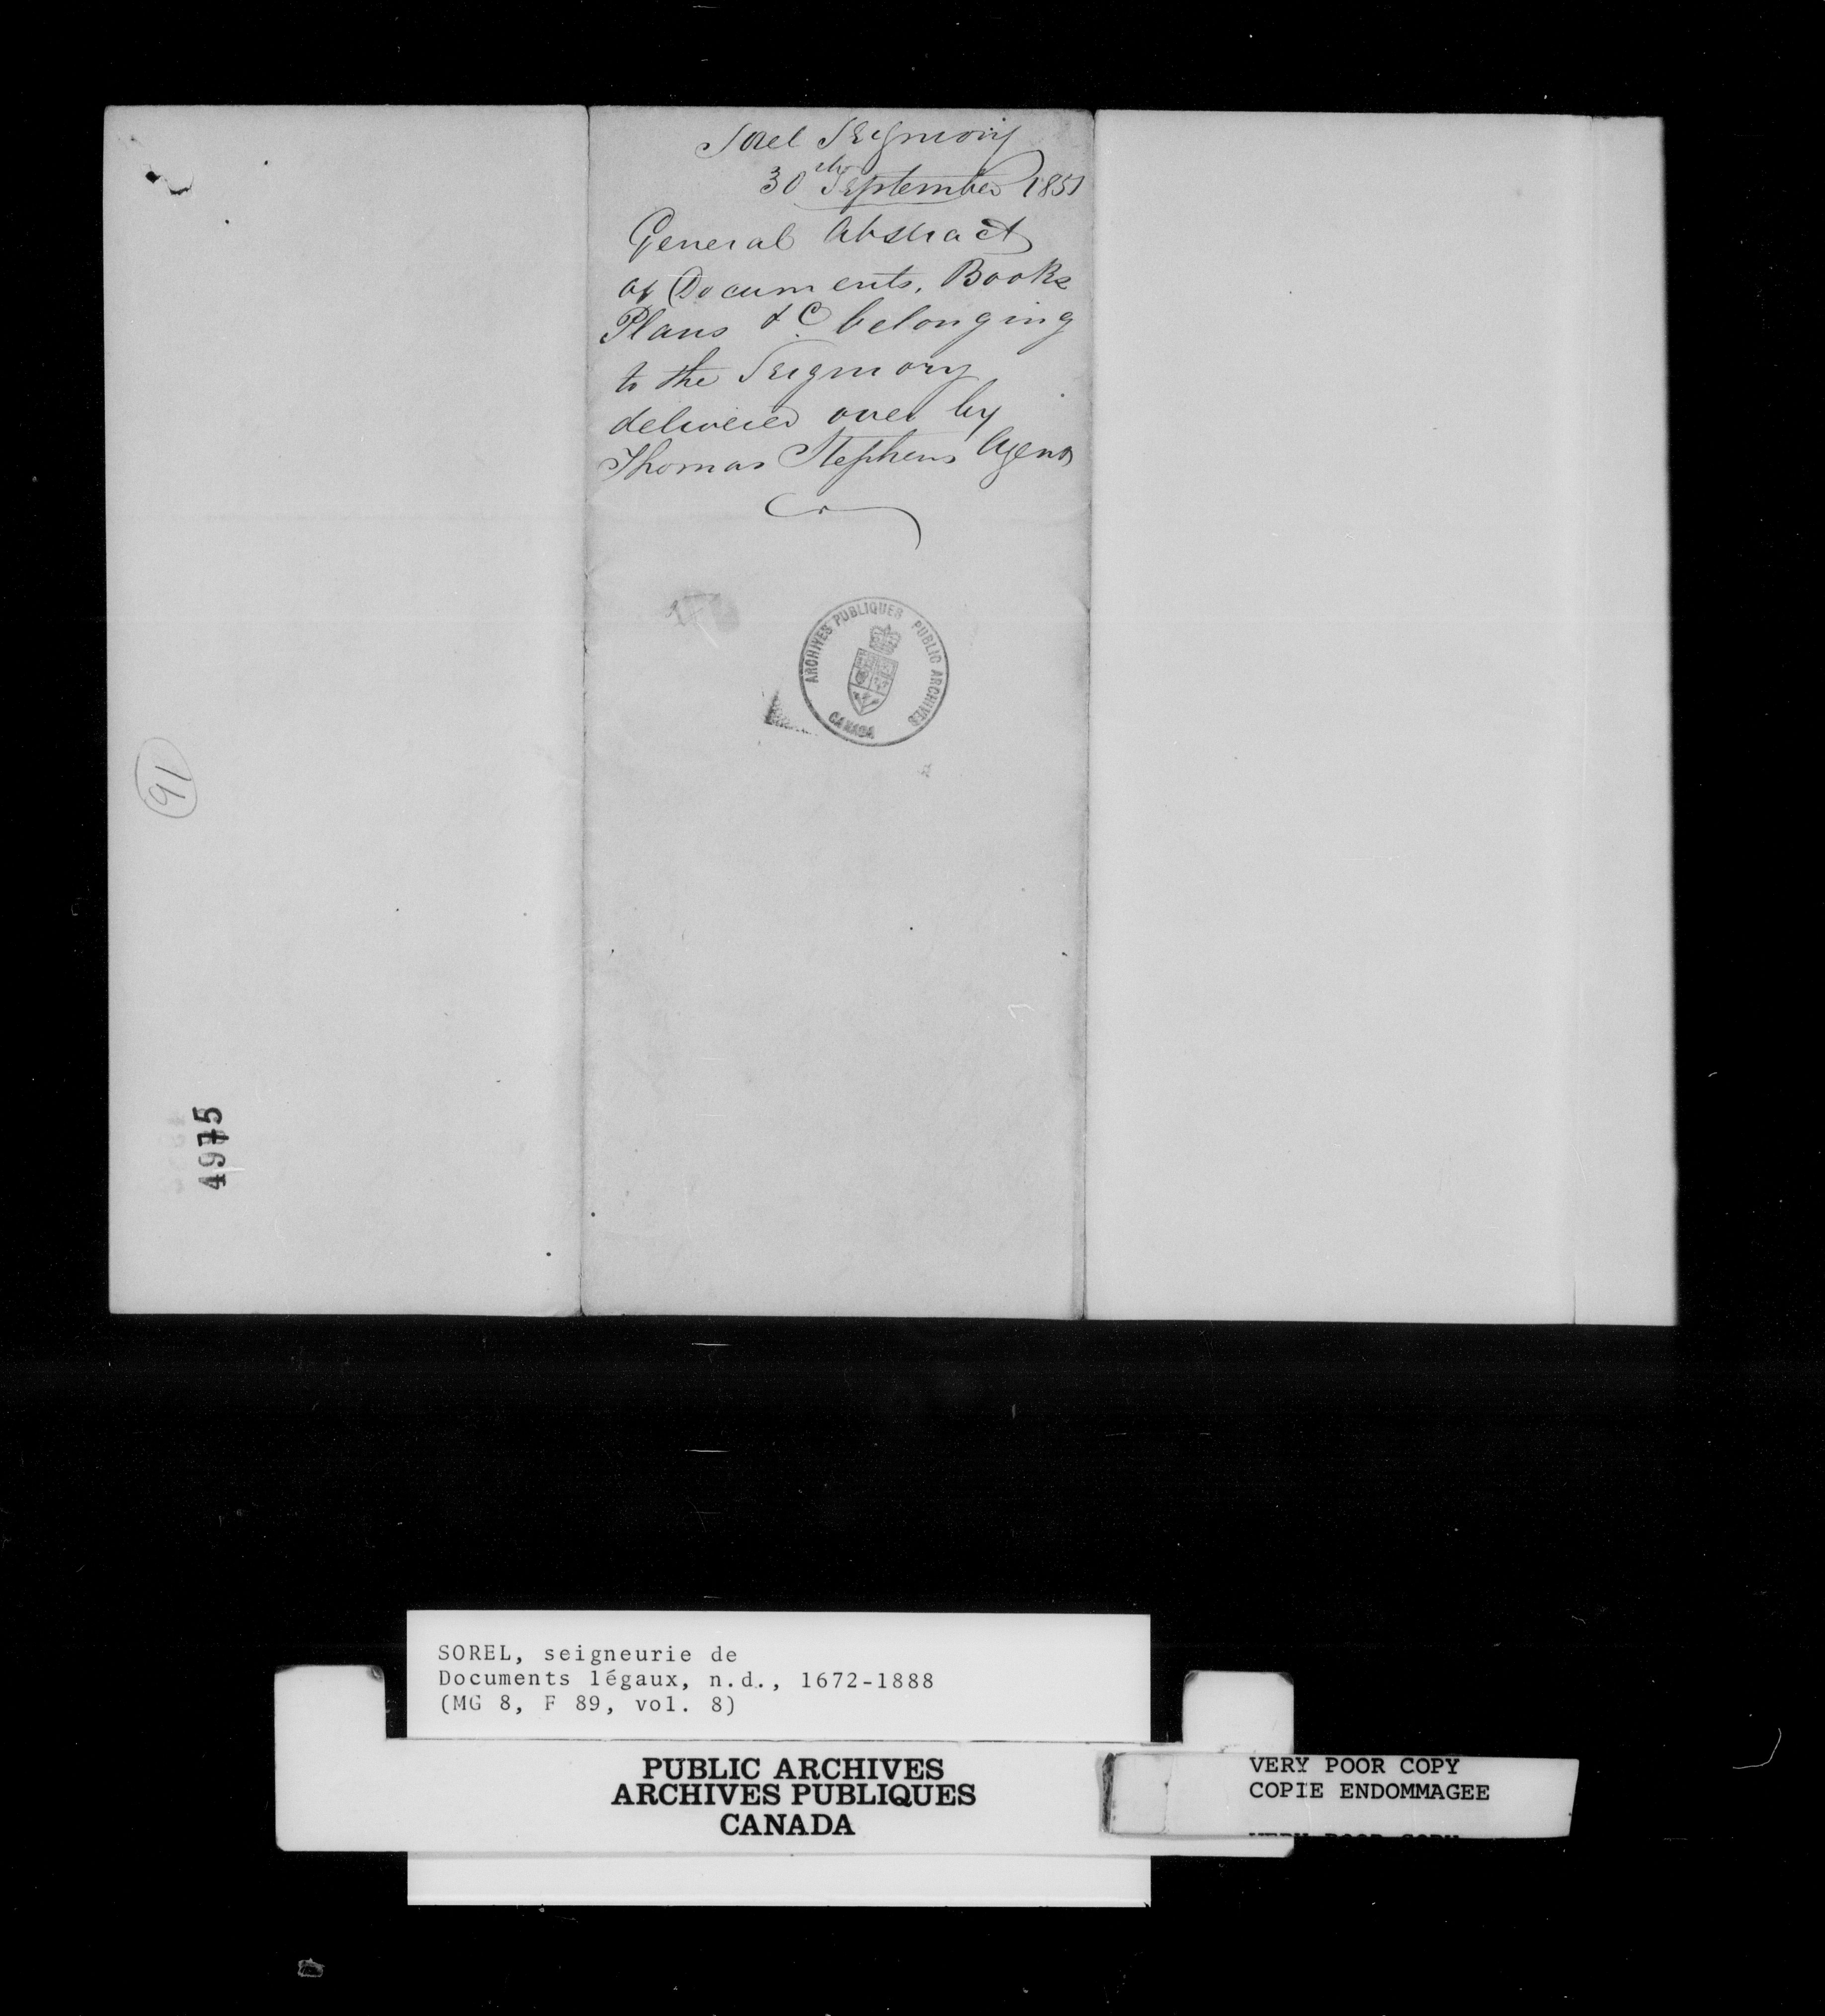 Sorel Seigniory
30th September 1851
General Abstract
of Documents, Books
Plans &c belonging
to the Seigniory
delivered over by
Thomas Stephens Agent
ARCHIVES PUBLIQUES PUBLIC ARCHIVES
CANADA
91
4975
SOREL, seigneurie de
Documents légaux, n.d., 1672-1888
(MG 8, F 89, vol. 8)
PUBLIC ARCHIVES
ARCHIVES PUBLIQUES
CANADA
VERY POOR COPY
COPIE ENDOMMAGEE
VERY POOR COPY